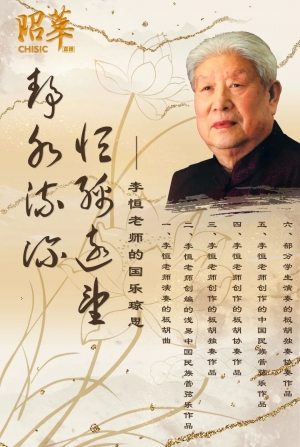 昭華
CHISIC
静水流深
恒弦远望
——李恒老师的国乐琼思
一、李恒老师演奏的板胡曲
二、李恒老师创编的浅易中国民族管弦乐作品
三、李恒老师创作的板胡独奏作品
四、李恒老师创作的板胡协奏作品
五、李恒老师创作的中国民族管弦乐作品
六、部分学生演奏的板胡独奏协奏作品